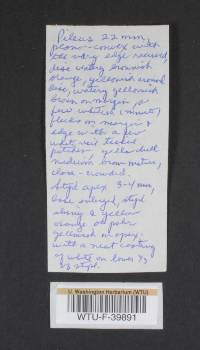 Pileus 22 mm,
plano-convex with
the very edge recurved,
disc watery brownish
orange, yellowish around
disc, watery yellowish
brown on margin, a
few whitish (minute)
flecks on margin &
edge with a few
white veil tissue
patches, yellow
medium brown mature,
close - crowded.
Stipe apex 3-4 mm,
base enlarged, stipe
& yellow
orange
yellowish on apex,
with a neat coating
of white on lower 2/3
of stipe.
U. Washington Herbarium (WTU)
WTU-F-39891